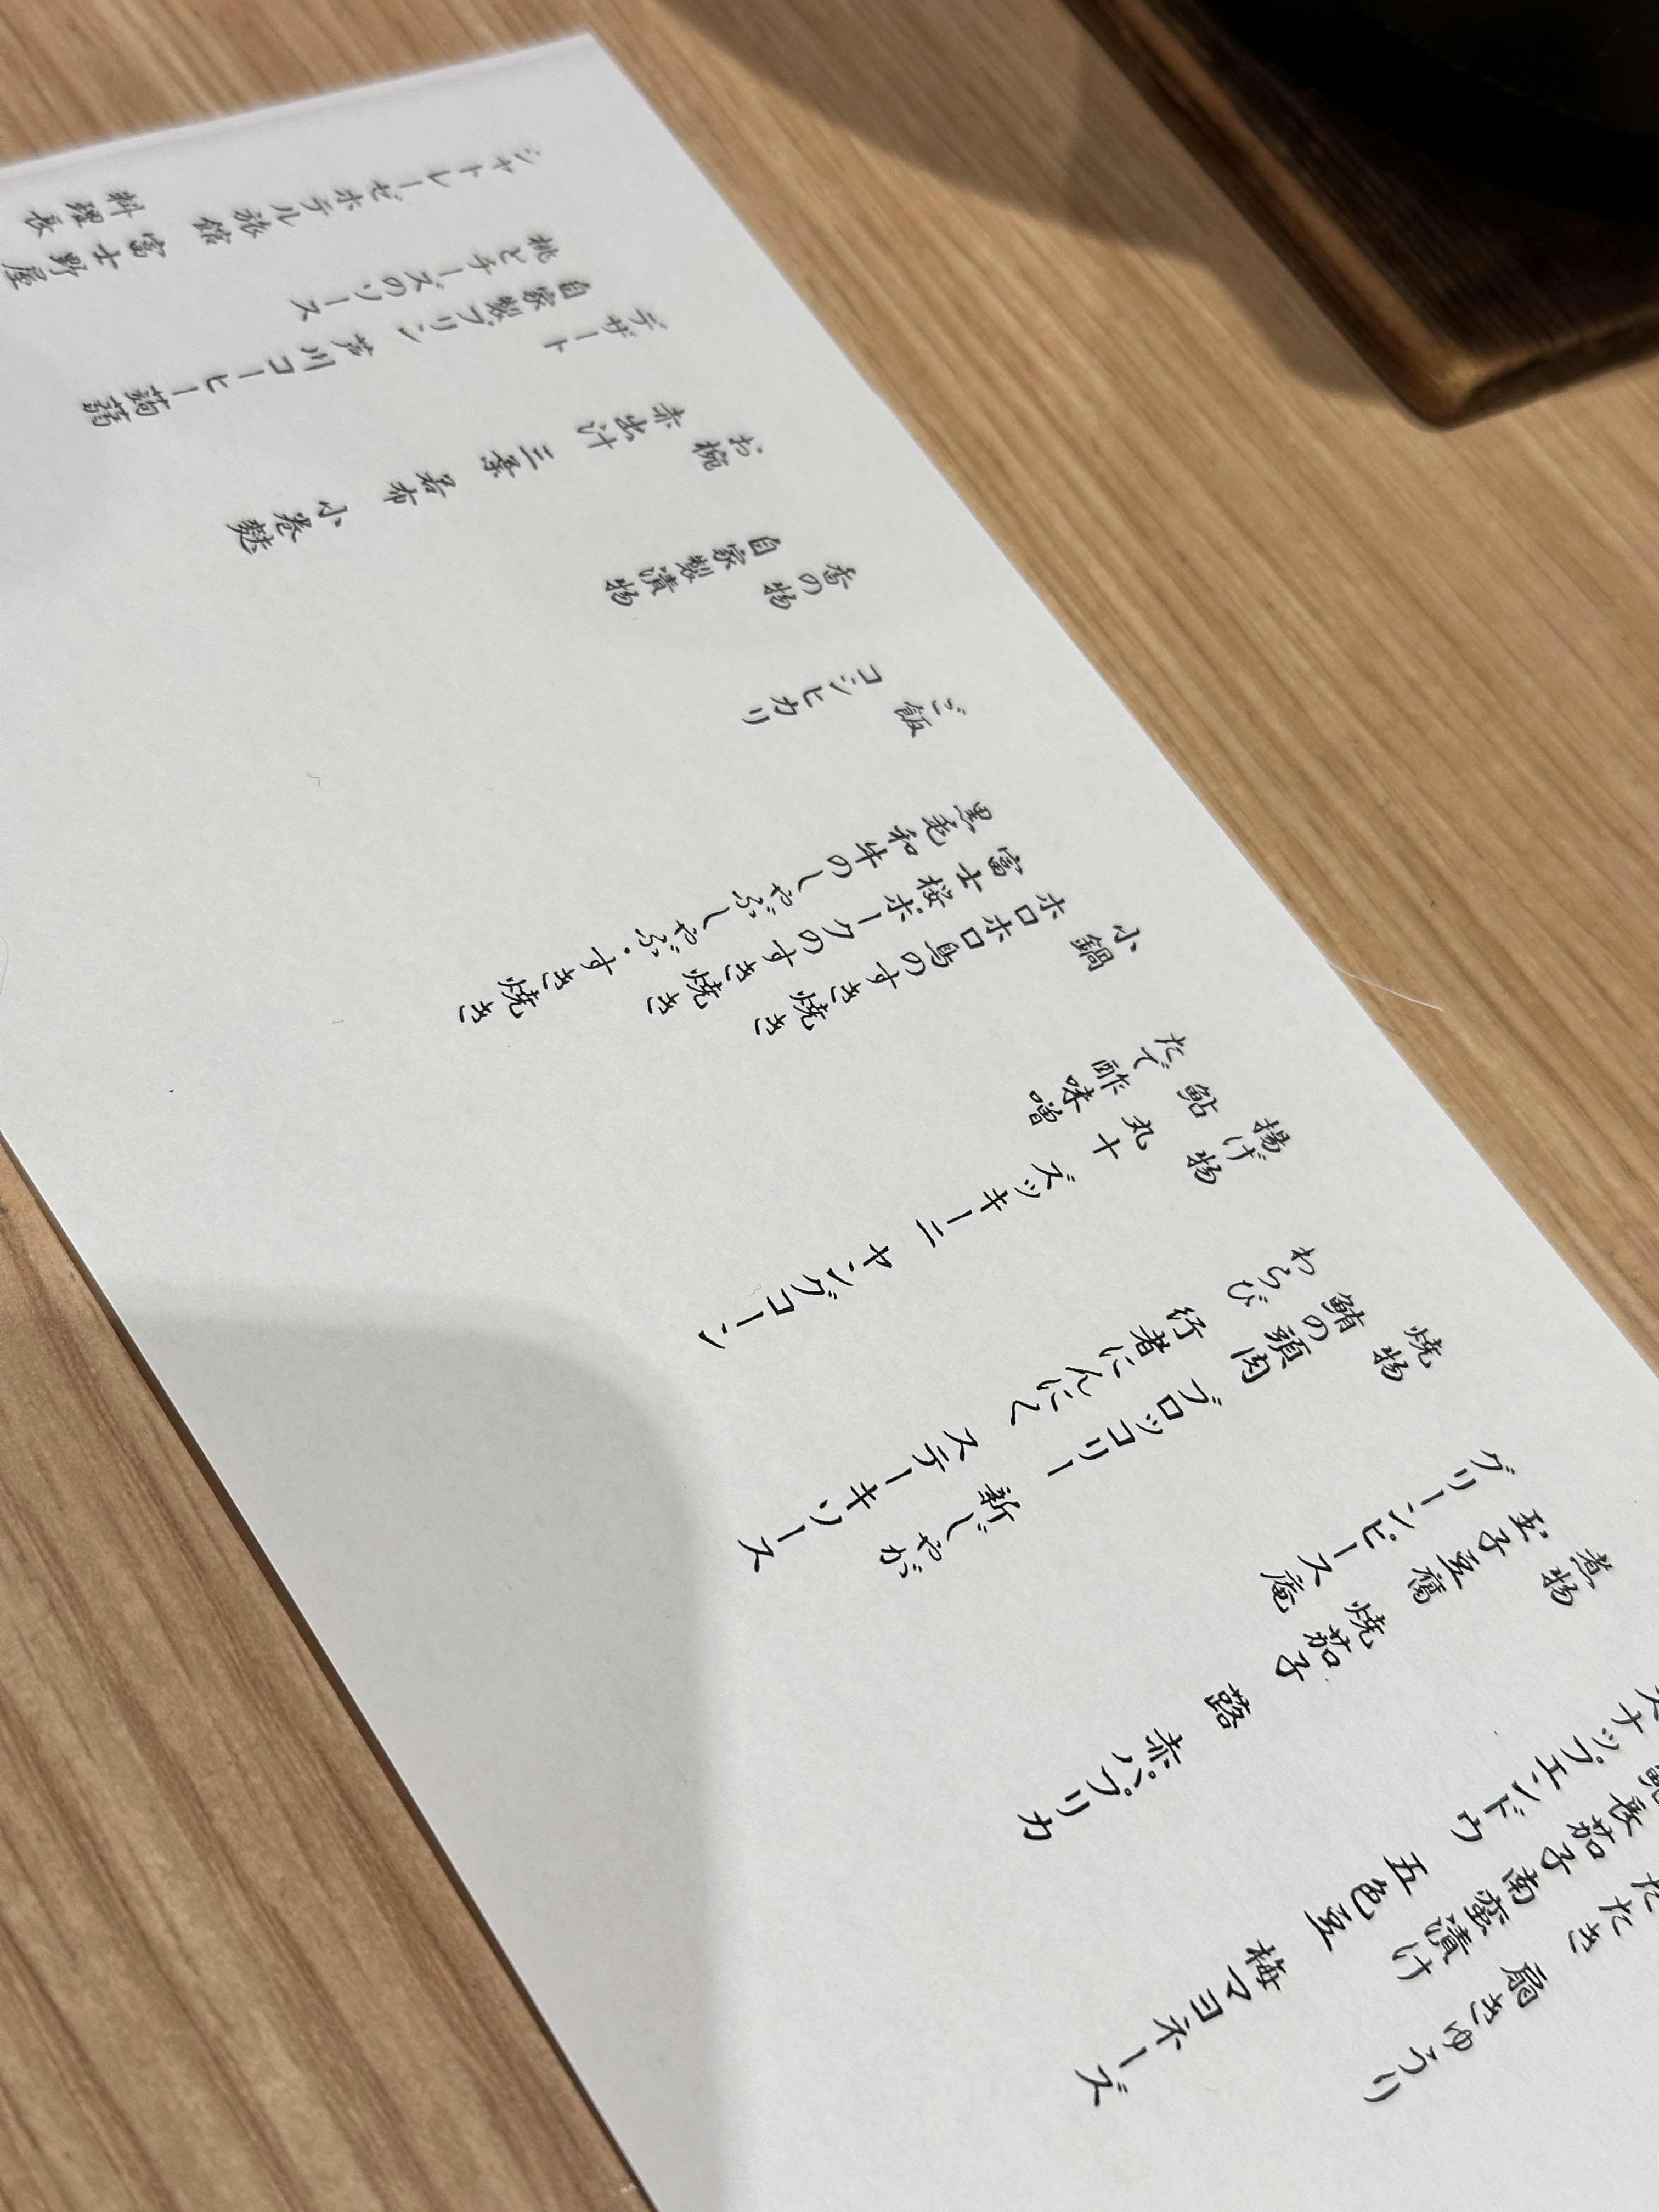 たたき 扇きゅうり
長茄子南蛮漬け
スナップエンドウ 五色豆 梅マヨネーズ
煮物
玉子豆腐 焼茄子 蕗 赤パプリカ
グリーンピース庵
焼物
鮪の頭肉 ブロッコリー 新じゃが
わらび 行者にんにく ステーキソース
揚げ物
鮎 丸十 ズッキーニ ヤングコーン
たで酢味噌
小鍋
ホロホロ鳥のすき焼き
富士桜ポークのすき焼き
黒毛和牛のしゃぶしゃぶ・すき焼き
ご飯
コシヒカリ
香の物
自家製漬物
お椀
赤出汁 三葉 若布 小巻麩
デザート
自家製プリン 芦川コーヒー蒟蒻
桃とチーズのソース
シャトレーゼホテル旅館 富士野屋
料理長